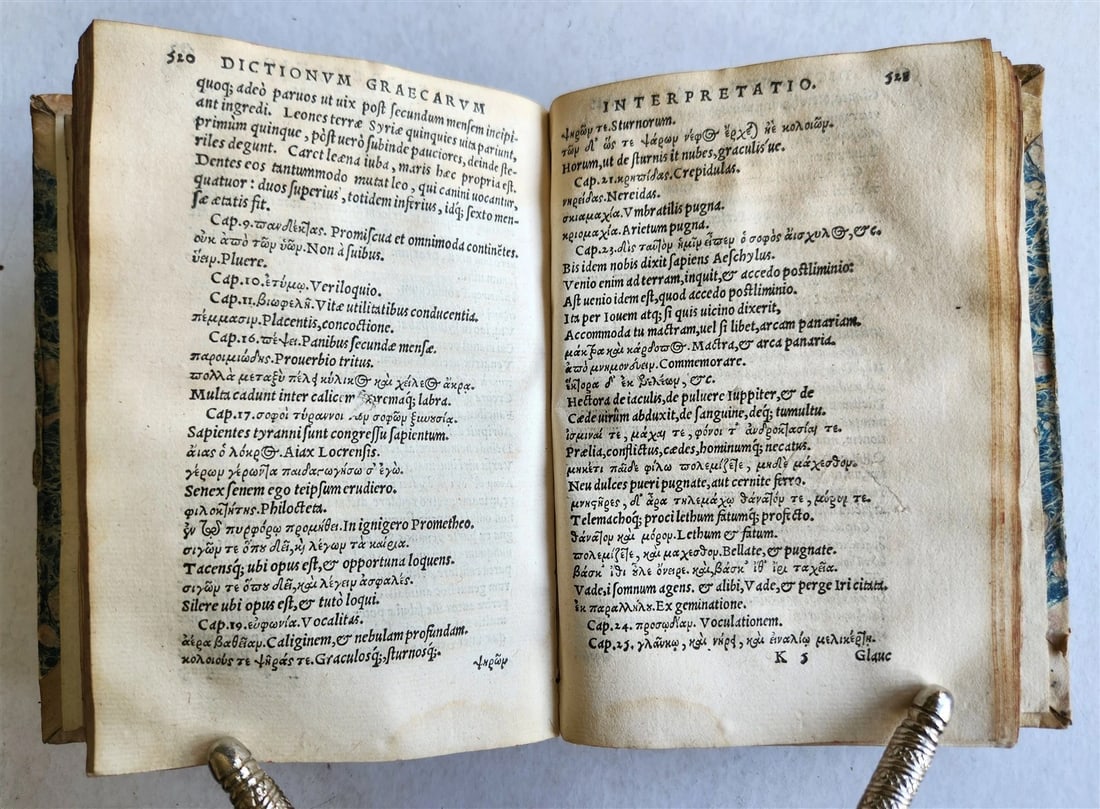 520 DICTIONVM GRAECARVM
quoq; adeò paruos ut uix post secundum mensem incipi-
ant ingredi. Leones terræ Syriæ quinquies uita pariunt,
primùm quinque, pòst uerò subinde pauciores, deinde ste-
riles degunt. Caret leæna iuba, maris hæc propria est.
Dentes eos tantummodo mutat leo, qui canini uocantur,
quatuor: duos superius, totidem inferius, idq; sexto men-
se ætatis fit.
Cap.9. πανδέκτας. Promiscua et omnimoda continẽtes.
οὐκ ἀπὸ τῶν ὑῶν. Non à suibus.
ὕειν. Pluere.
Cap.10. ἐτύμῳ. Veriloquio.
Cap.11. βιωφελῆ. Vitæ utilitatibus conducentia.
πέμμασιν. Placentis, concoctione.
Cap.16. πέψει. Panibus secundæ mensæ.
παροιμιώδης. Prouerbio tritus.
πολλὰ μεταξὺ πέλει κύλικος καὶ χείλεος ἄκρα.
Multa cadunt inter calicem supremaq; labra.
Cap.17. σοφοὶ τύραννοι τῶν σοφῶν ξυνουσίᾳ.
Sapientes tyranni sunt congressu sapientum.
αἴας ὁ λόκρος. Aiax Locrensis.
γέρων γέροντα παιδαγωγήσω σ' ἐγώ.
Senex senem ego teipsum erudiero.
φιλοκτήτης. Philocteta.
ἐν τῷ πυρφόρῳ προμηθεῖ. In ignigero Prometheo.
σιγῶν τε ὅπου δεῖ, καὶ λέγων τὰ καίρια.
Tacensq; ubi opus est, & opportuna loquens.
σιγᾶν τε ὅπου δεῖ, καὶ λέγειν ἀσφαλές.
Silere ubi opus est, & tutò loqui.
Cap.19. εὐφωνία. Vocalitas.
ἀέρα βαθεῖαν. Caliginem, & nebulam profundam.
κολοιούς τε ψῆράς τε. Graculosq;, sturnosq;.
ψηρῶν
INTERPRETATIO. 521
ψηρῶν τε. Sturnorum.
τῶν δ' ὥς τε ψάρων νέφος ἔρχεται ἠὲ κολοιῶν.
Horum, ut de sturnis it nubes, graculis ue.
Cap.21. κρηπῖδας. Crepidulas.
νηρεΐδας. Nereidas.
σκιαμαχία. Vmbratilis pugna.
κριομαχία. Arietum pugna.
Cap.23. δὶς ταυτὸν ἡμῖν εἶπεν ὁ σοφὸς αἰσχύλος, &c.
Bis idem nobis dixit sapiens Aeschylus.
Venio enim ad terram, inquit, & accedo postliminio:
Ast uenio idem est, quod accedo postliminio.
Ita per Iouem atq; si quis uicino dixerit,
Accommoda tu mactram, uel si libet, arcam panariam.
μάκτρα καὶ κάρδοπος. Mactra, & arca panaria.
ἀπὸ μνημονεύειν. Commemorare.
ἕκτορα δ' ἐκ βελέων, &c.
Hectora de iaculis, de puluere Iuppiter, & de
Cæde uirûm abduxit, de sanguine, deq; tumultu.
ὑσμῖναί τε, μάχαι τε, φόνοι τ' ἀνδροκτασίαι τε.
Prælia, conflictus, cædes, hominumq; necatus.
μηκέτι παῖδε φίλω πολεμίζετε, μηδὲ μάχεσθον.
Neu dulces pueri pugnate, aut cernite ferro.
μνηστῆρες, δ' ἄρα τηλεμάχῳ θάνατόν τε, μόρον τε.
Telemachoq; proci lethum fatumq; profecto.
θάνατον καὶ μόρον. Lethum & fatum.
πολεμίζετε, καὶ μάχεσθον. Bellate, & pugnate.
βάσκ' ἴθι οὖλε ὄνειρε. καὶ, βάσκ' ἴθ' ἶρι ταχεῖα.
Vade, i somnum agens. & alibi, Vade, & perge Iri citata.
ἐκ παραλλήλου. Ex geminatione.
Cap.24. προσῳδίαν. Voculationem.
Cap.25. γλαύκῳ, καὶ νηρεῖ, καὶ εἰναλίῳ μελικέρτῃ.
K 5 Glauc